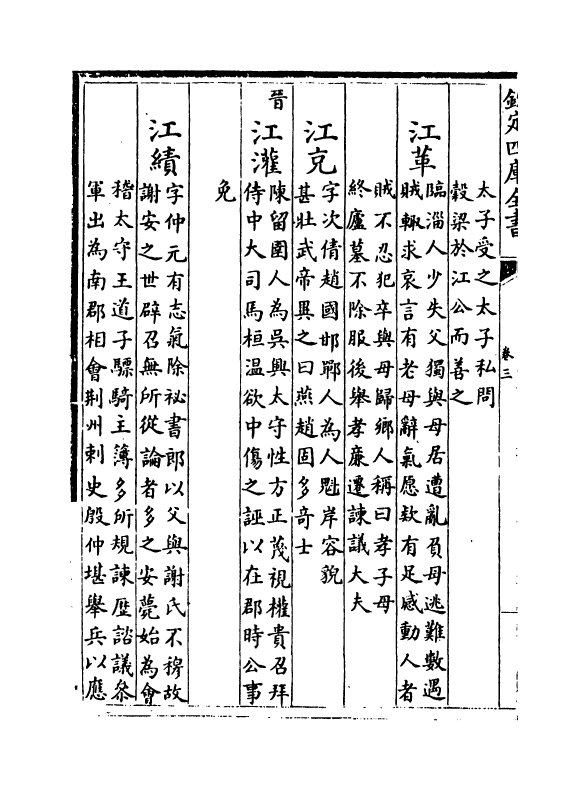 欽定四庫全書
卷三
太子受之太子私問
穀梁於江公而善之
江革
臨淄人少失父獨與母居遭亂負母逃難數遇
賊輙求哀言有老母辭氣愿欵有足感動人者
賊不忍犯卒與母歸鄉人稱曰孝子母
終廬墓不除服後舉孝廉遷諫議大夫
江充
字次倩趙國邯鄲人為人魁岸容貌
甚壯武帝異之曰燕趙固多奇士
晉
江灌
陳留圉人為吳興太守性方正蔑視權貴召拜
侍中大司馬桓温欲中傷之誣以在郡時公事
免
江績
字仲元有志氣除祕書郎以父與謝氏不穆故
謝安之世辟召無所從論者多之安薨始為會
稽太守王道子驃騎主簿多所規諫歴諮議叅
軍出為南郡相會荆州刺史殷仲堪舉兵以應